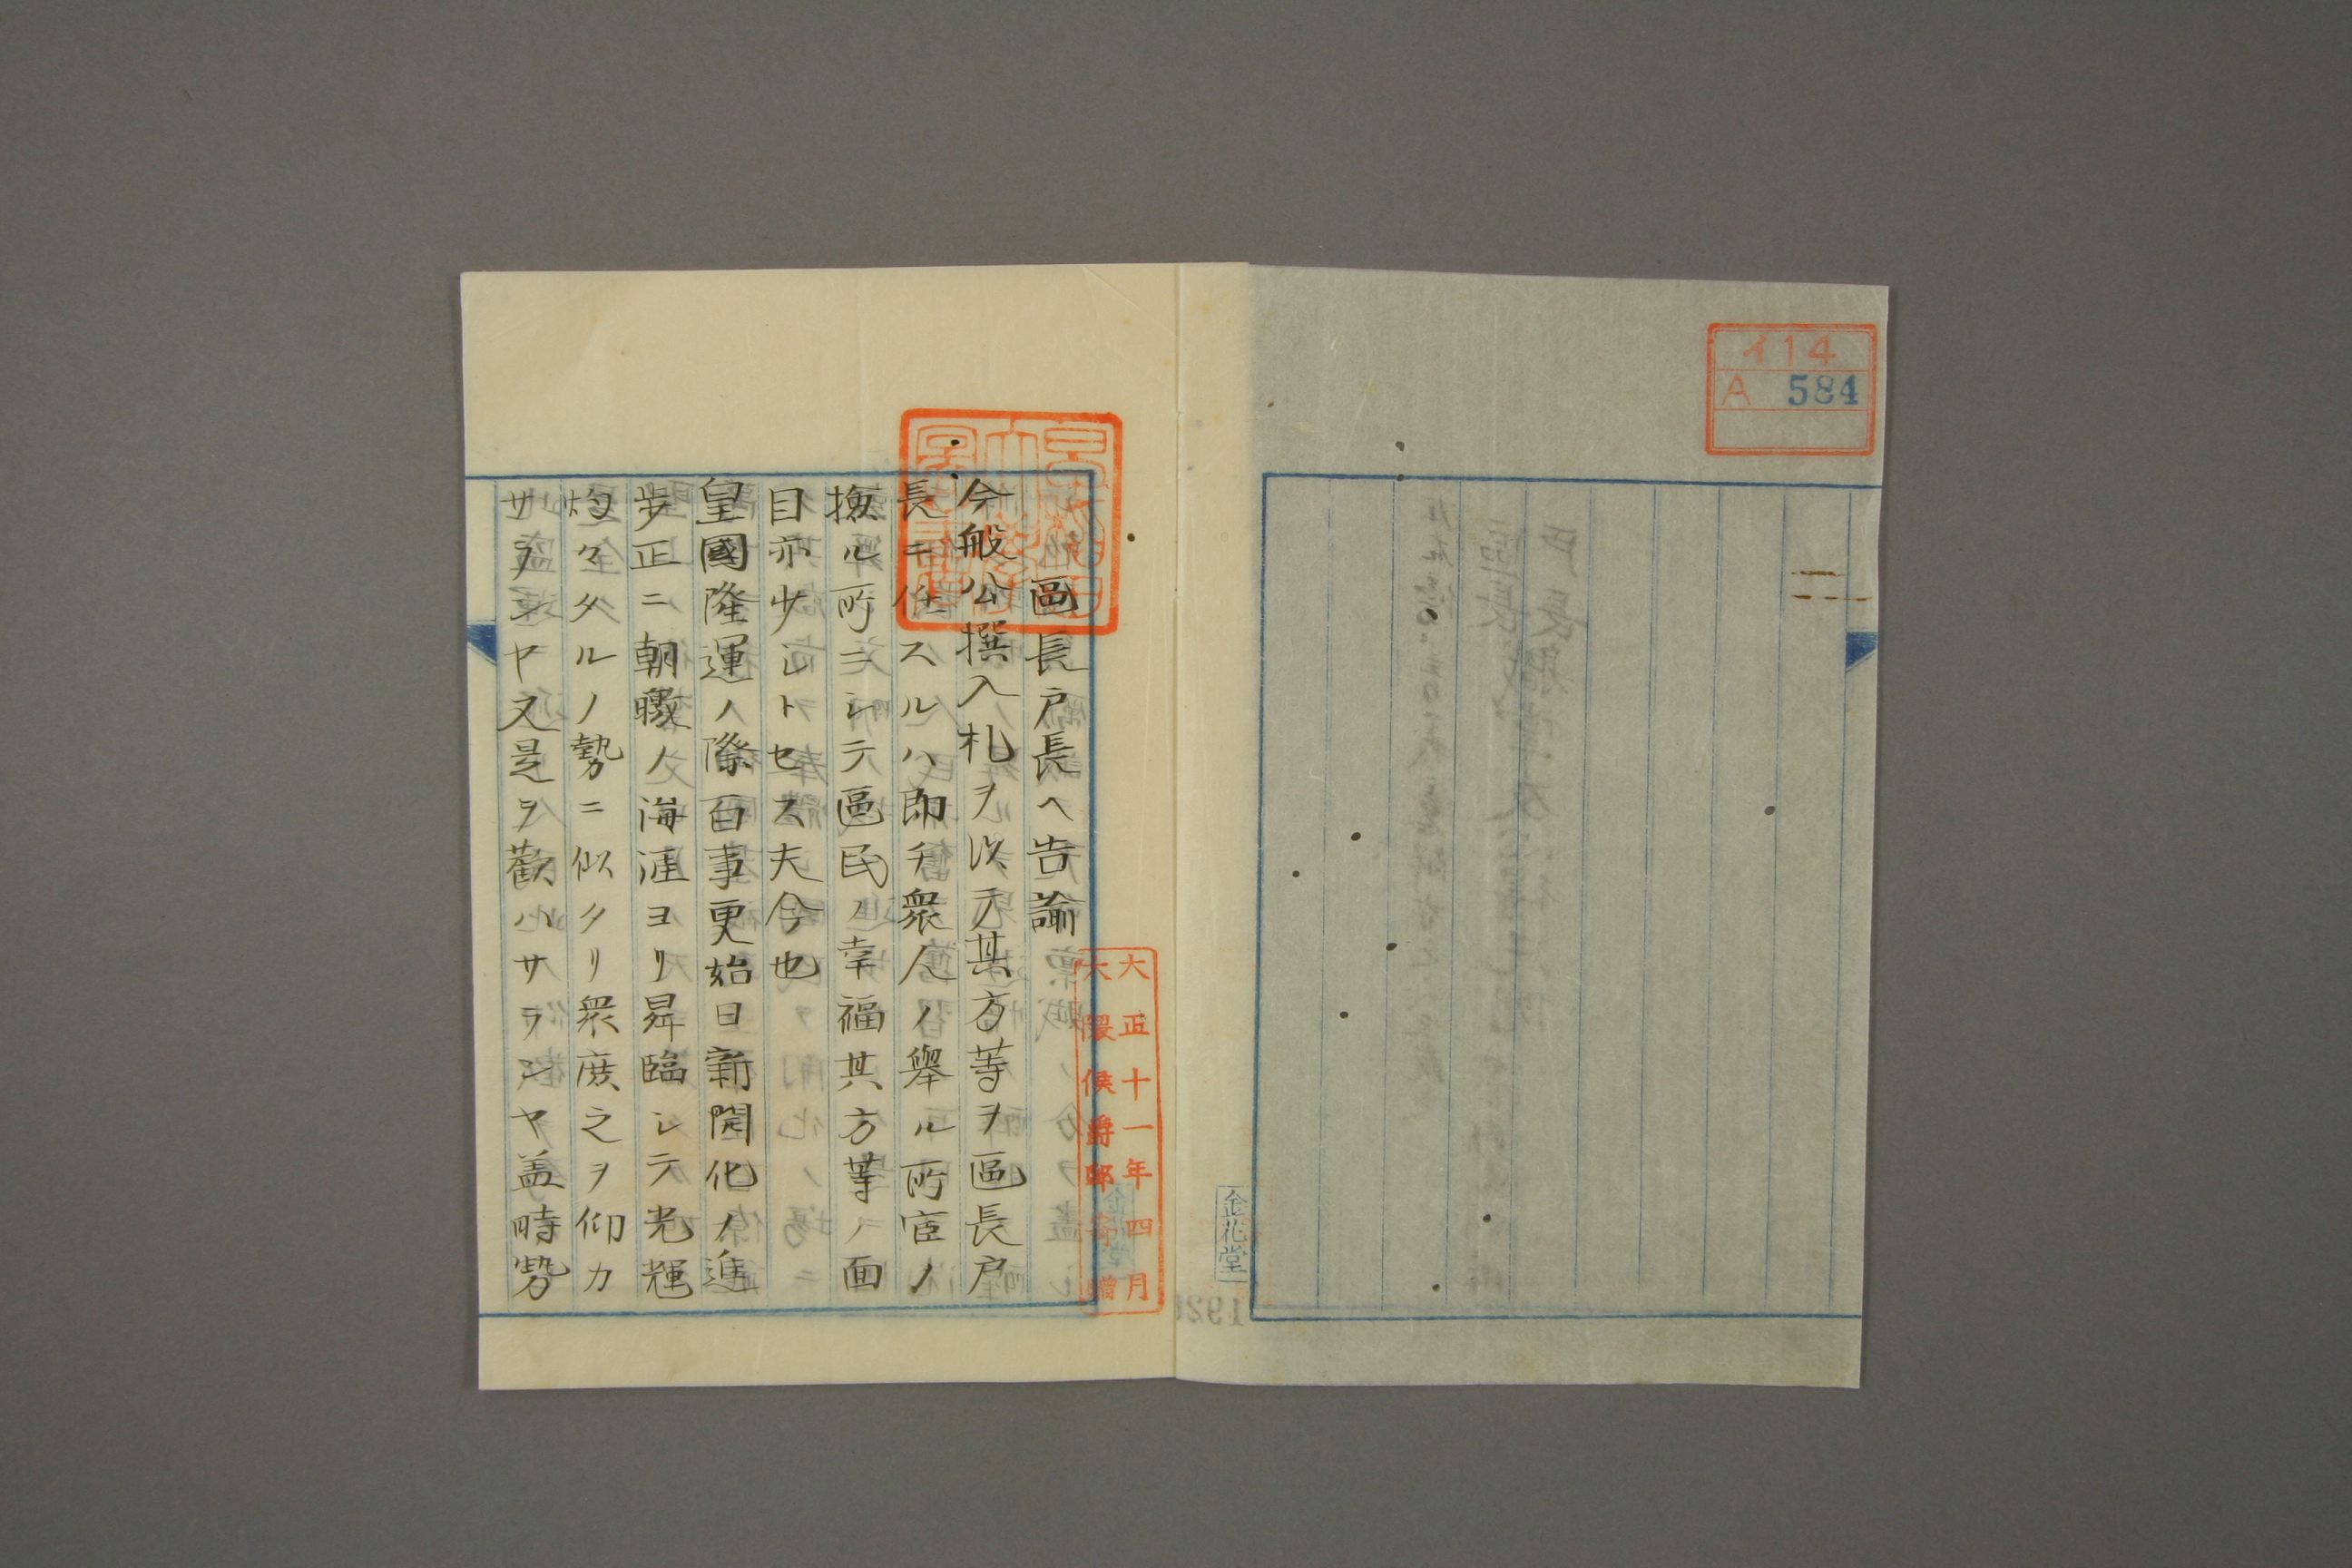 イ14
A 584
金花堂
大正十一年四月
大隈侯爵邸寄贈
區長戸長ヘ告諭
今般公撰入札ヲ以テ其方等ヲ區長戸
長ニ任スルハ即チ衆人ノ擧ル所宦ノ
撫ル所ニシテ區民ノ幸福其方等ノ面
目亦少シトセス夫今也
皇國隆運ノ際百事更始日新開化ノ進
歩正ニ朝暾ノ海涯ヨリ昇臨シテ光輝
灼々タルノ勢ニ似タリ衆庶之ヲ仰カ
サランヤ又是ヲ歡ハサランヤ盖時勢